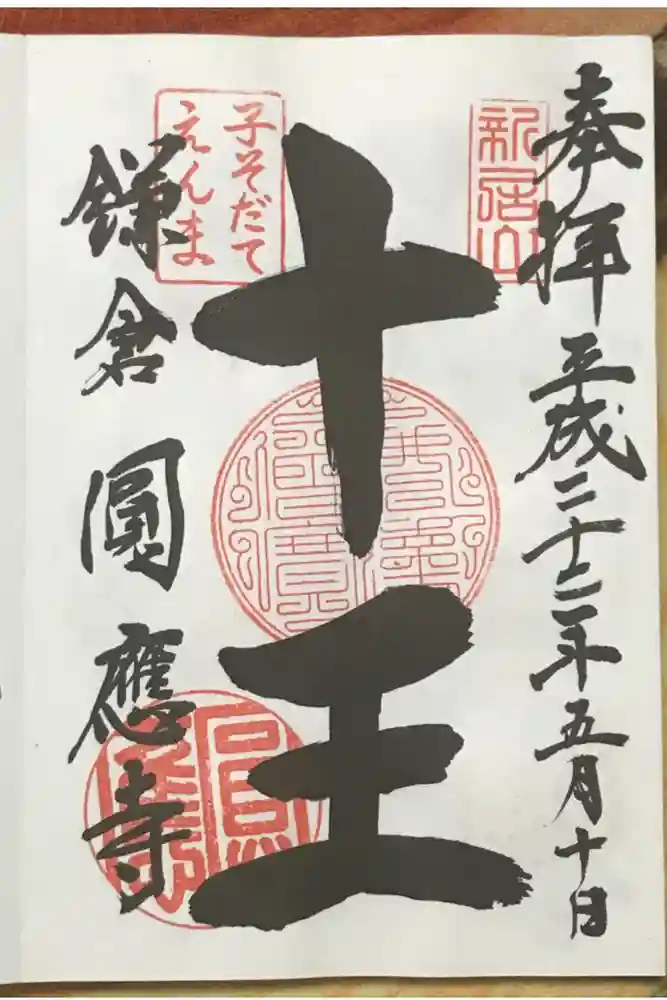 奉拝
平成二十二年五月十日
新居山
十王
子そだて
えんま
鎌倉
圓應寺